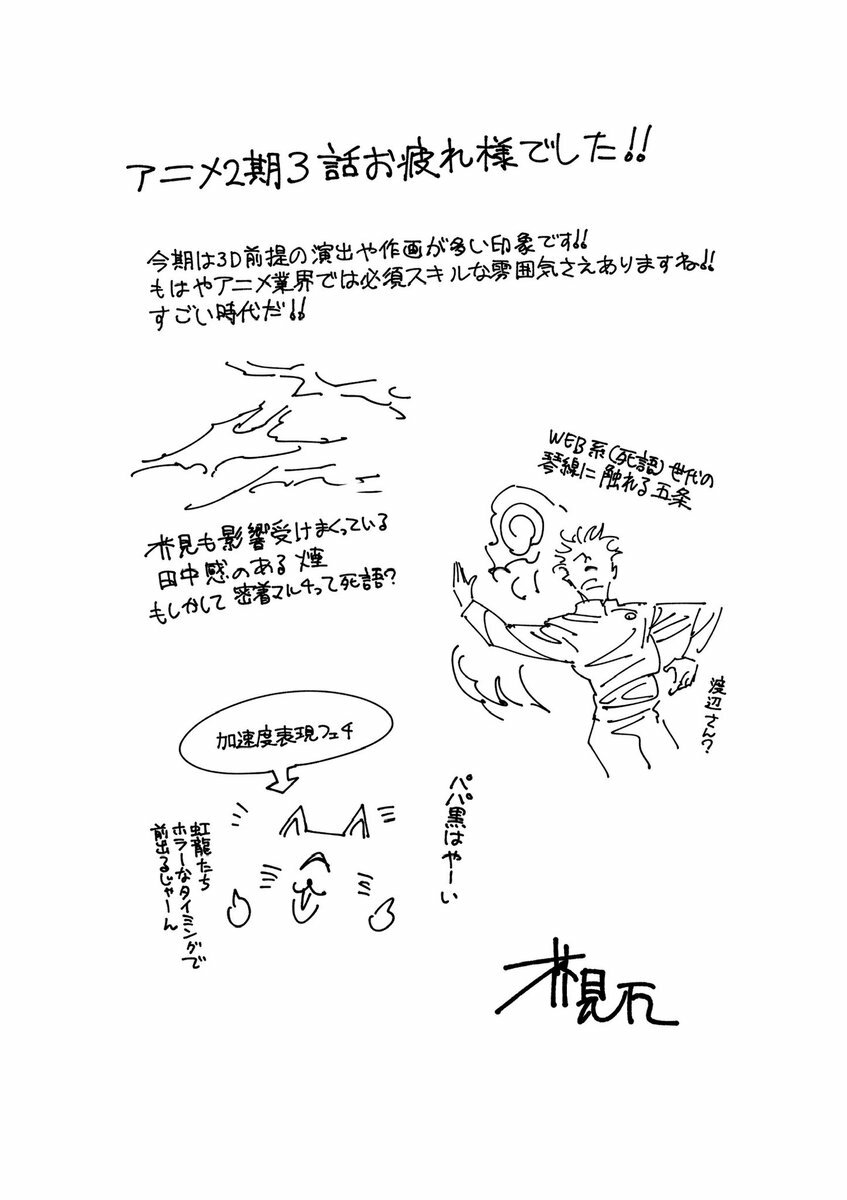 アニメ2期3話お疲れ様でした!!
今期は3D前提の演出や作画が多い印象です!!
もはやアニメ業界では必須スキルな雰囲気さえありますね!!
すごい時代だ!!
WEB系(死語)世代の
琴線に触れる五条
芥見も影響受けまくっている
田中感のある煙
もしかして密着マルチって死語?
渡辺さん?
加速度表現フェチ
パパ黒はやーい
虹龍たち
ホラーなタイミングで
前出るじゃーん
芥見下々